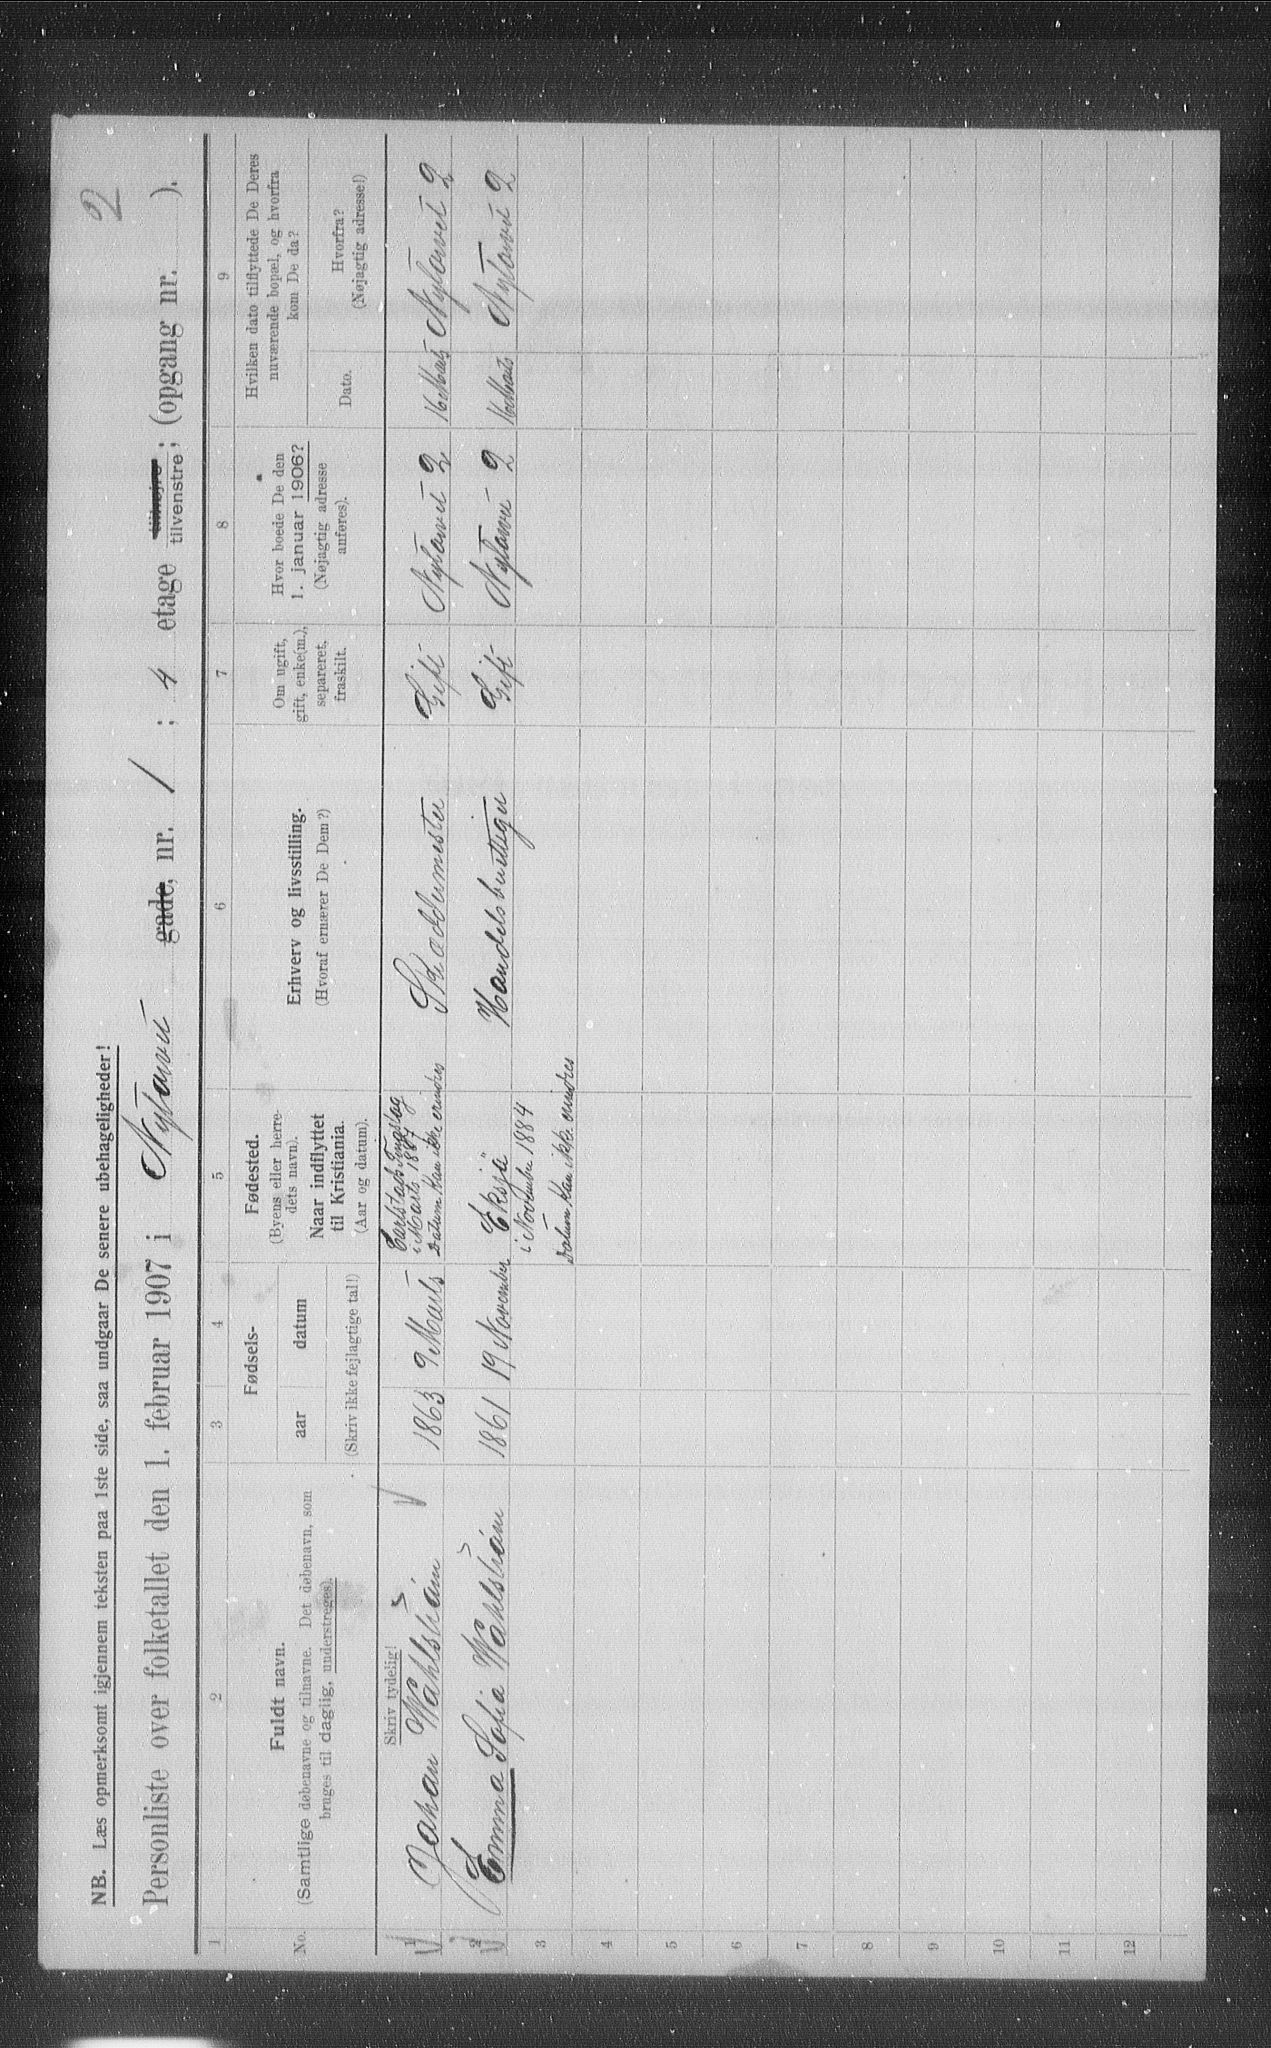 2
NB. Læs opmerksomt igjennem teksten paa 1ste side, saa undgaar De senere ubehageligheder!
Personliste over folketallet den 1. februar 1907 i Nytorvet gade, nr. 1 ; 4 etage tilhøjre tilvenstre; (opgang nr. ).
1 2 3 4 5 6 7 8 9
No.
Fuldt navn.
(Samtlige døbenavne og tilnavne. Det døbenavn, som
bruges til daglig, understreges).
Fødsels-
aar datum
(Skriv ikke fejlagtige tal!)
Fødested.
(Byens eller herre-
dets navn).
Naar indflyttet
til Kristiania.
(Aar og datum).
Erhverv og livsstilling.
(Hvoraf ernærer De Dem?)
Om ugift,
gift, enke(m.),
separeret,
fraskilt.
Hvor boede De den
1. januar 1906?
(Nøjagtig adresse
anføres).
Hvilken dato tilflyttede De Deres
nuværende bopæl, og hvorfra
kom De da?
Dato.
Hvorfra?
(Nøjagtig adresse!)
Skriv tydelig!
1 Johan Wahlström 1863 9 Marts Carlstad
i Marts 1887
Datum kan ikke erindres
Skræddermester Gift Nytorvet 2 16 Marts Nytorvet 2
2 Emma Sofia Wahlström 1861 19 November Eksjä
i November 1884
Datum kan ikke erindres
Handelsberettiget Gift Nytorvet 2 16 Marts Nytorvet 2
3
4
5
6
7
8
9
10
11
12